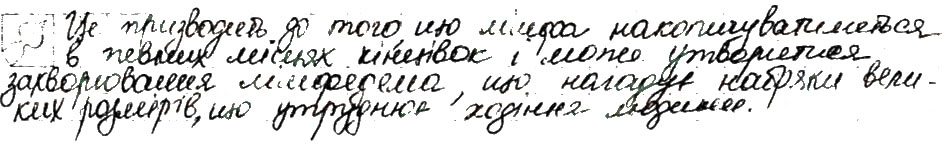 Це призводить до того що лімфа накопичуватиметься
в певних місцях кінцівок і може утворитися
захворювання лімфедема, що нагадує набряки вели-
ких розмірів, що утруднює ходіння людини.